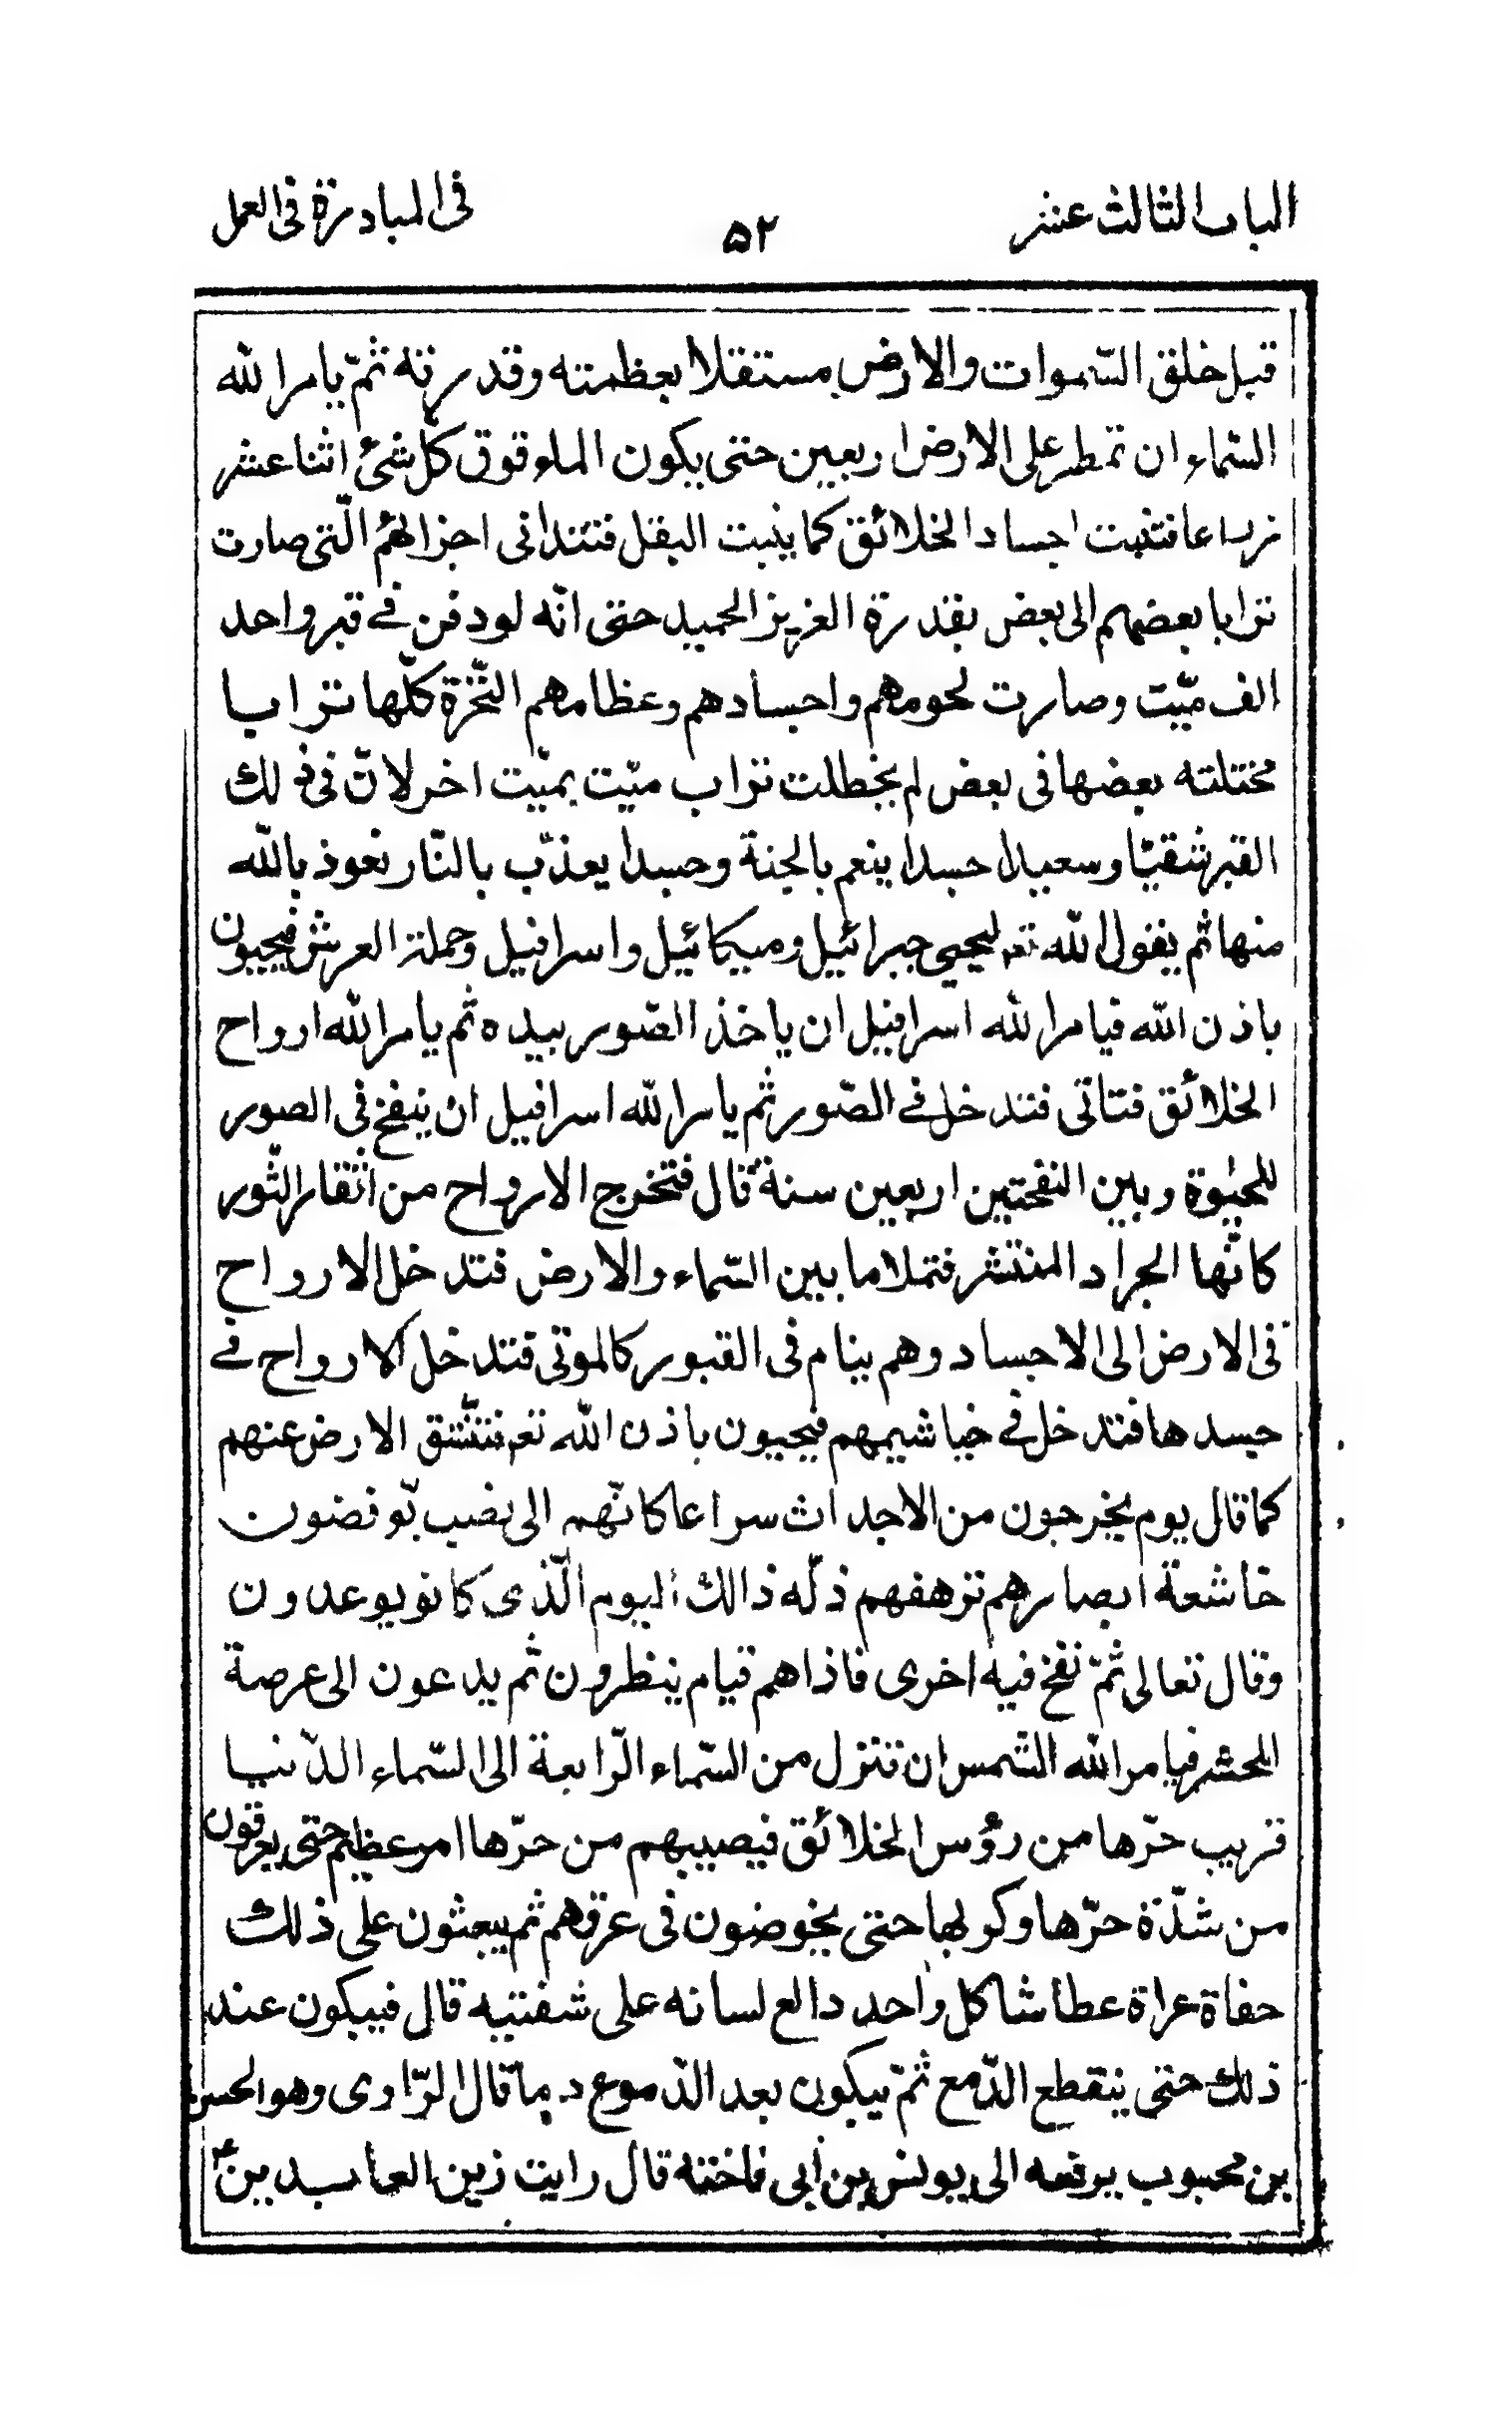 الباب الثالث عشر
۵۲
فى المبادرة فى العمل
قبل خلق السّموات والارض مستقلا بعظمته وقدرته ثمّ يامر الله
السّماء ان تمطر على الارض اربعين حتى يكون الماء فوق كلّ شئ اثنا عشر
ذراعا فتنبت اجساد الخلائق كما ينبت البقل فتتدانى اجزائهم الّتى صارت
ترابا بعضهم الى بعض بقدرة العزيز الحميد حتى انّه لو دفن فے قبر واحد
الف ميّت وصارت لحومهم واجسادهم وعظامهم النّخرة كلّها ترابا
مختلته بعضها فى بعض لم يختلت تراب ميّت بميّت اخر لانّ فى ذلك
القبر شقيّا وسعيدا جسدا ينعم بالجنة وجسدا يعذّب بالنّار نعوذ بالله
منها ثم يقول الله تعم ليحيى جبرائيل وميكائيل واسرافيل وحملة العرش فيحيون
باذن الله فيامر الله اسرافيل ان ياخذ الصّور بيده ثم يامر الله ارواح
الخلائق فتاتى فتدخل فے الصّور ثم يامر الله اسرافيل ان ينفخ فى الصور
للحيٰوة وبين النفختين اربعين سنة قال فتخرج الارواح من اثقار الثّور
كانّها الجراد المنتشر فتملا ما بين السّماء والارض فتدخل الارواح
فى الارض الى الاجساد وهم ينام فى القبور كالموتى فتدخل الارواح فے
جسدها فتدخل فے خياشيمهم فيحيون باذن الله تعم فتنشّق الارض عنهم
كما قال يوم يخرجون من الاجداث سراعا كانّهم الى نصب يّوفضون
خاشعة ابصارهم ترهفهم ذلّه ذالك اليوم الّذى كانو يوعدون
وقال تعالى ثمّ نفخ فيه اخرى فاذاهم قيام ينظرون ثم يدعون الى عرصة
المحشر فيامر الله الشّمس ان تنزل من السّماء الرّابعة الى السّماء الدّنيا
قريب حرّها من رؤس الخلائق فيصيبهم من حرّها امر عظيم حتى يعرقون
من شدّة حرّها وكربها حتى يخوضون فى عرقهم ثم يبعثون على ذلك
حفاة عراة عطاشا كل واحد دالع لسانه على شفتيه قال فيبكون عند
ذلك حتى ينقطع الدّمع ثمّ يبكون بعد الدّموع دما قال الرّاوى وهو الحسن
بن محبوب يرفعه الى يونس بن أبى فاخته قال رايت زين العابدين ع